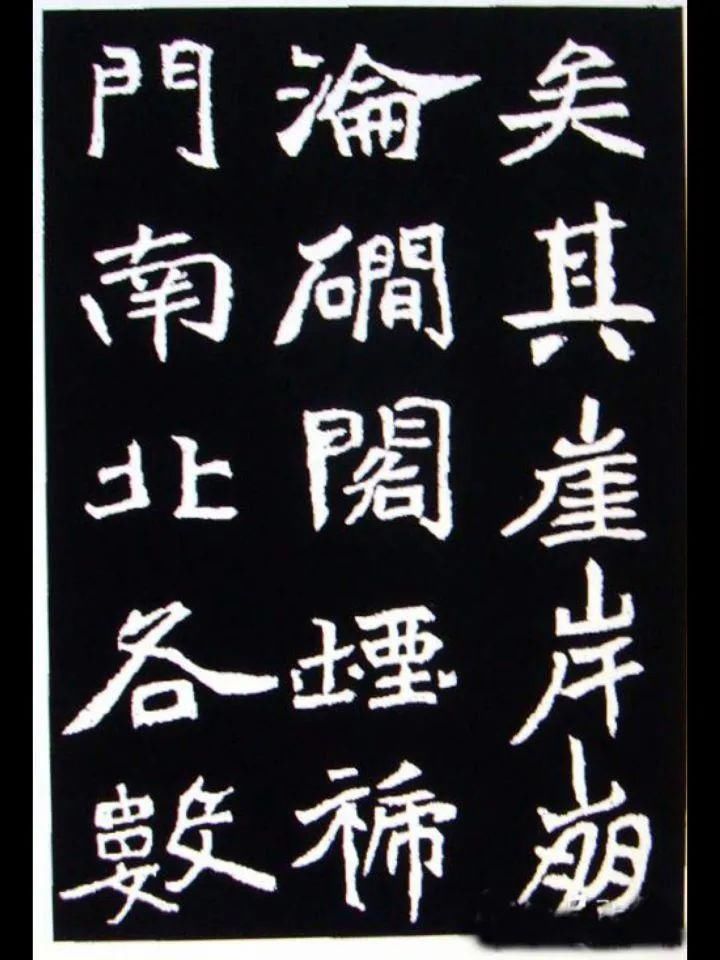 矣其崖岸崩
淪磵閣堙褫
門南北各數